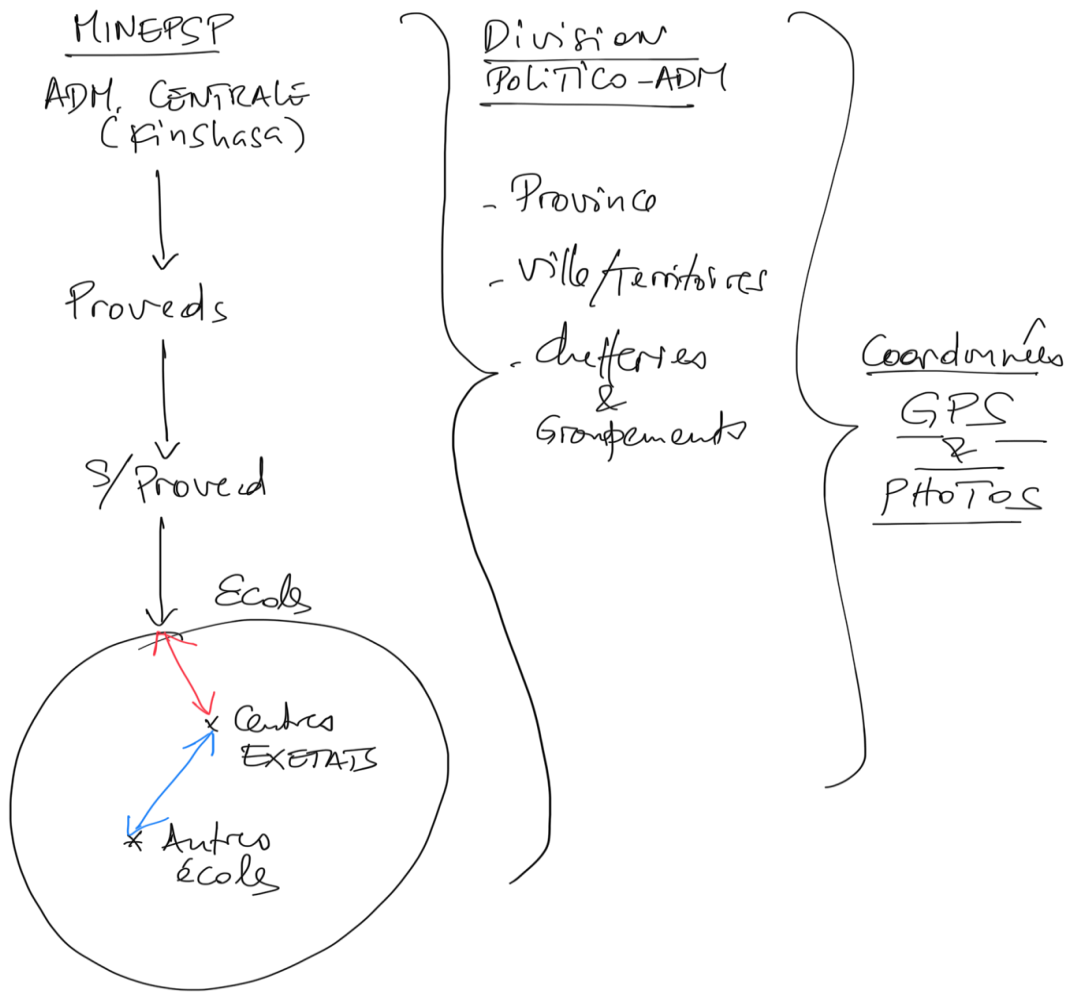 MINEPSP
ADM. CENTRALE
(Kinshasa)
Proveds
S/Proved
Ecoles
x Centres
EXETATS
x Autres
écoles
Division
POLiTiCO-ADM
- Province
- Ville/Territoires
- Chefferies
&
Groupements
Coordonnées
GPS
&
PHOTOS